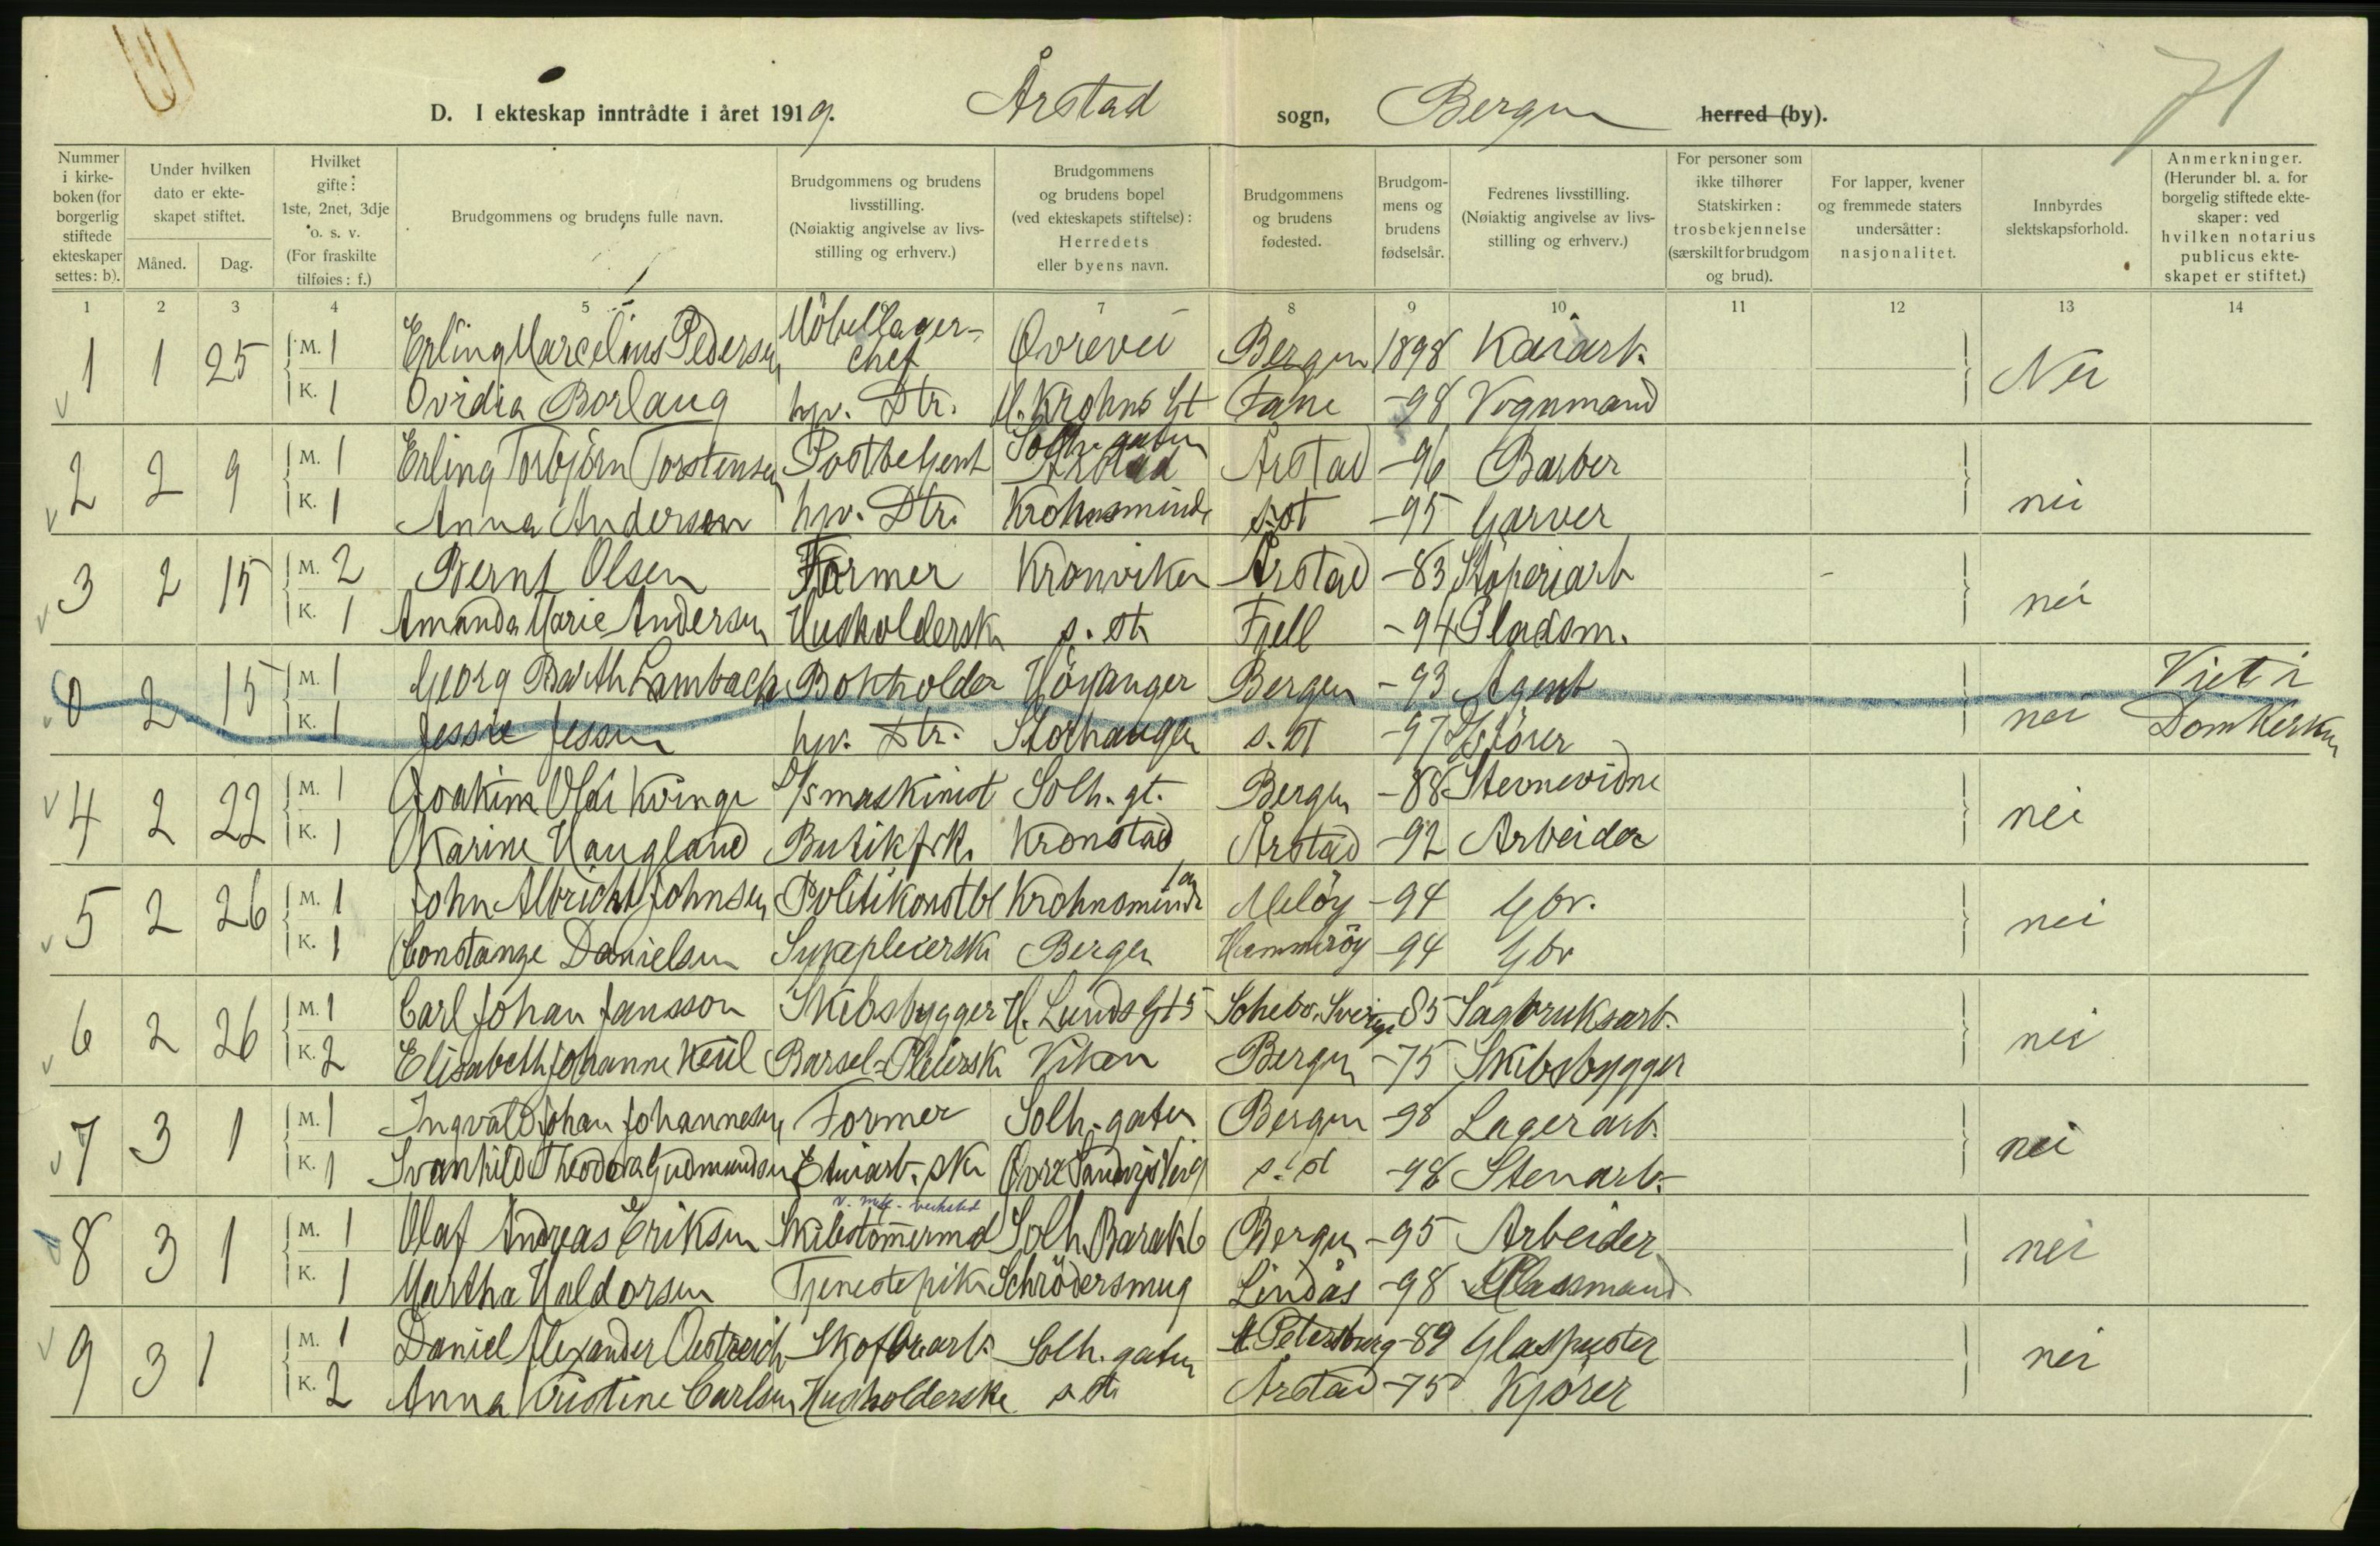 71
D. I ekteskap inntrådte i året 1919. Årstad sogn, Bergen herred (by).
Nummer i kirkeboken (for borgerlig stiftede ekteskaper settes: b).
Under hvilken dato er ekteskapet stiftet.
Måned. Dag.
Hvilket gifte: 1ste, 2net, 3dje o. s. v. (For fraskilte tilføies: f.)
Brudgommens og brudens fulle navn.
Brudgommens og brudens livsstilling. (Nøiaktig angivelse av livsstilling og erhverv.)
Brudgommens og brudens bopel (ved ekteskapets stiftelse): Herredets eller byens navn.
Brudgommens og brudens fødested.
Brudgommens og brudens fødselsår.
Fedrenes livsstilling. (Nøiaktig angivelse av livsstilling og erhverv.)
For personer som ikke tilhører Statskirken: trosbekjennelse (særskilt for brudgom og brud).
For lapper, kvener og fremmede staters undersåtter: nasjonalitet.
Innbyrdes slektskapsforhold.
Anmerkninger. (Herunder bl. a. for borgelig stiftede ekteskaper: ved hvilken notarius publicus ekteskapet er stiftet.)
1 2 3 4 5 6 7 8 9 10 11 12 13 14
1 1 25 M. 1 Erling Marcelius Pedersen Möbellagerchef Övrevei Bergen 1898 Kaiarb. Nei
K. 1 Ovidia Borlaug hjv. Dtr. M. Krohns Gt Fane -98 Vognmand
2 2 9 M. 1 Erling Torbjörn Torstensen Postbetjent Solh. gaten Årstad Årstad -96 Barber nei
K. 1 Anna Andersen hjv. Dtr. Krohnsminde s. st -95 Garver
3 2 15 M. 2 Bernt Olsen Former Kronviken Årstad -83 Stöperiarb nei
K. 1 Amanda Marie Andersen Husholdersk s. st. Fjell -94 Pladsm.
0 2 15 M. 1 Georg Barth Lambach Bokholder Höyanger Bergen -93 Agent nei Viet i Domkirken
K. 1 Jessie Jessen hjv. Dtr. Storhaugen s. st -97
4 2 22 M. 1 Joakim Olai Kvinge D/S maskinist Solh. gt. Bergen -88 Stevnevidne nei
K. 1 Karine Haugland Butikfrk. Kronstad Årstad -92 Arbeider
5 2 26 M. 1 John Albricht Johnsen Politikonstbl Krohnsminde Melöy -94 Gbr. nei
K. 1 Constanze Danielsen Sykepleierske Bergen Hammeröy -94 Gbr
6 2 26 M. 1 Carl Johan Jansson Skibsbygger H. Lunds Gt 5 Schebo. Sverige 85 Sagbruksarb. nei
K. 2 Elisabeth Johanne Keül Barsel-Pleiersk Viken Bergen -75 Skibsbygger
7 3 1 M. 1 Ingvald Johan Johannesen Former Solh. gaten Bergen -98 Lagerarb. nei
K. 1 Svanhild Theodora Gudmundsen Etuiarb.ske Övre Sandvijsvei 9 s. st -98 Stenarb.
v. mek. verksted
8 3 1 M. 1 Olaf Andreas Eriksen Skibstömmermd Solh. Barak 6 Bergen -95 Arbeider nei
K. 1 Martha Haldorsen Tjenestepike Schrödersmug Lindås -98 Plassmand
9 3 1 M. 1 Daniel Alexander Oestreich Skofbr.arb. Solh. gaten St. Petersburg -89 Glaspuster nei
K. 2 Anna Kristine Carlsen Husholderske s. st. Årstad -75 Kjörer